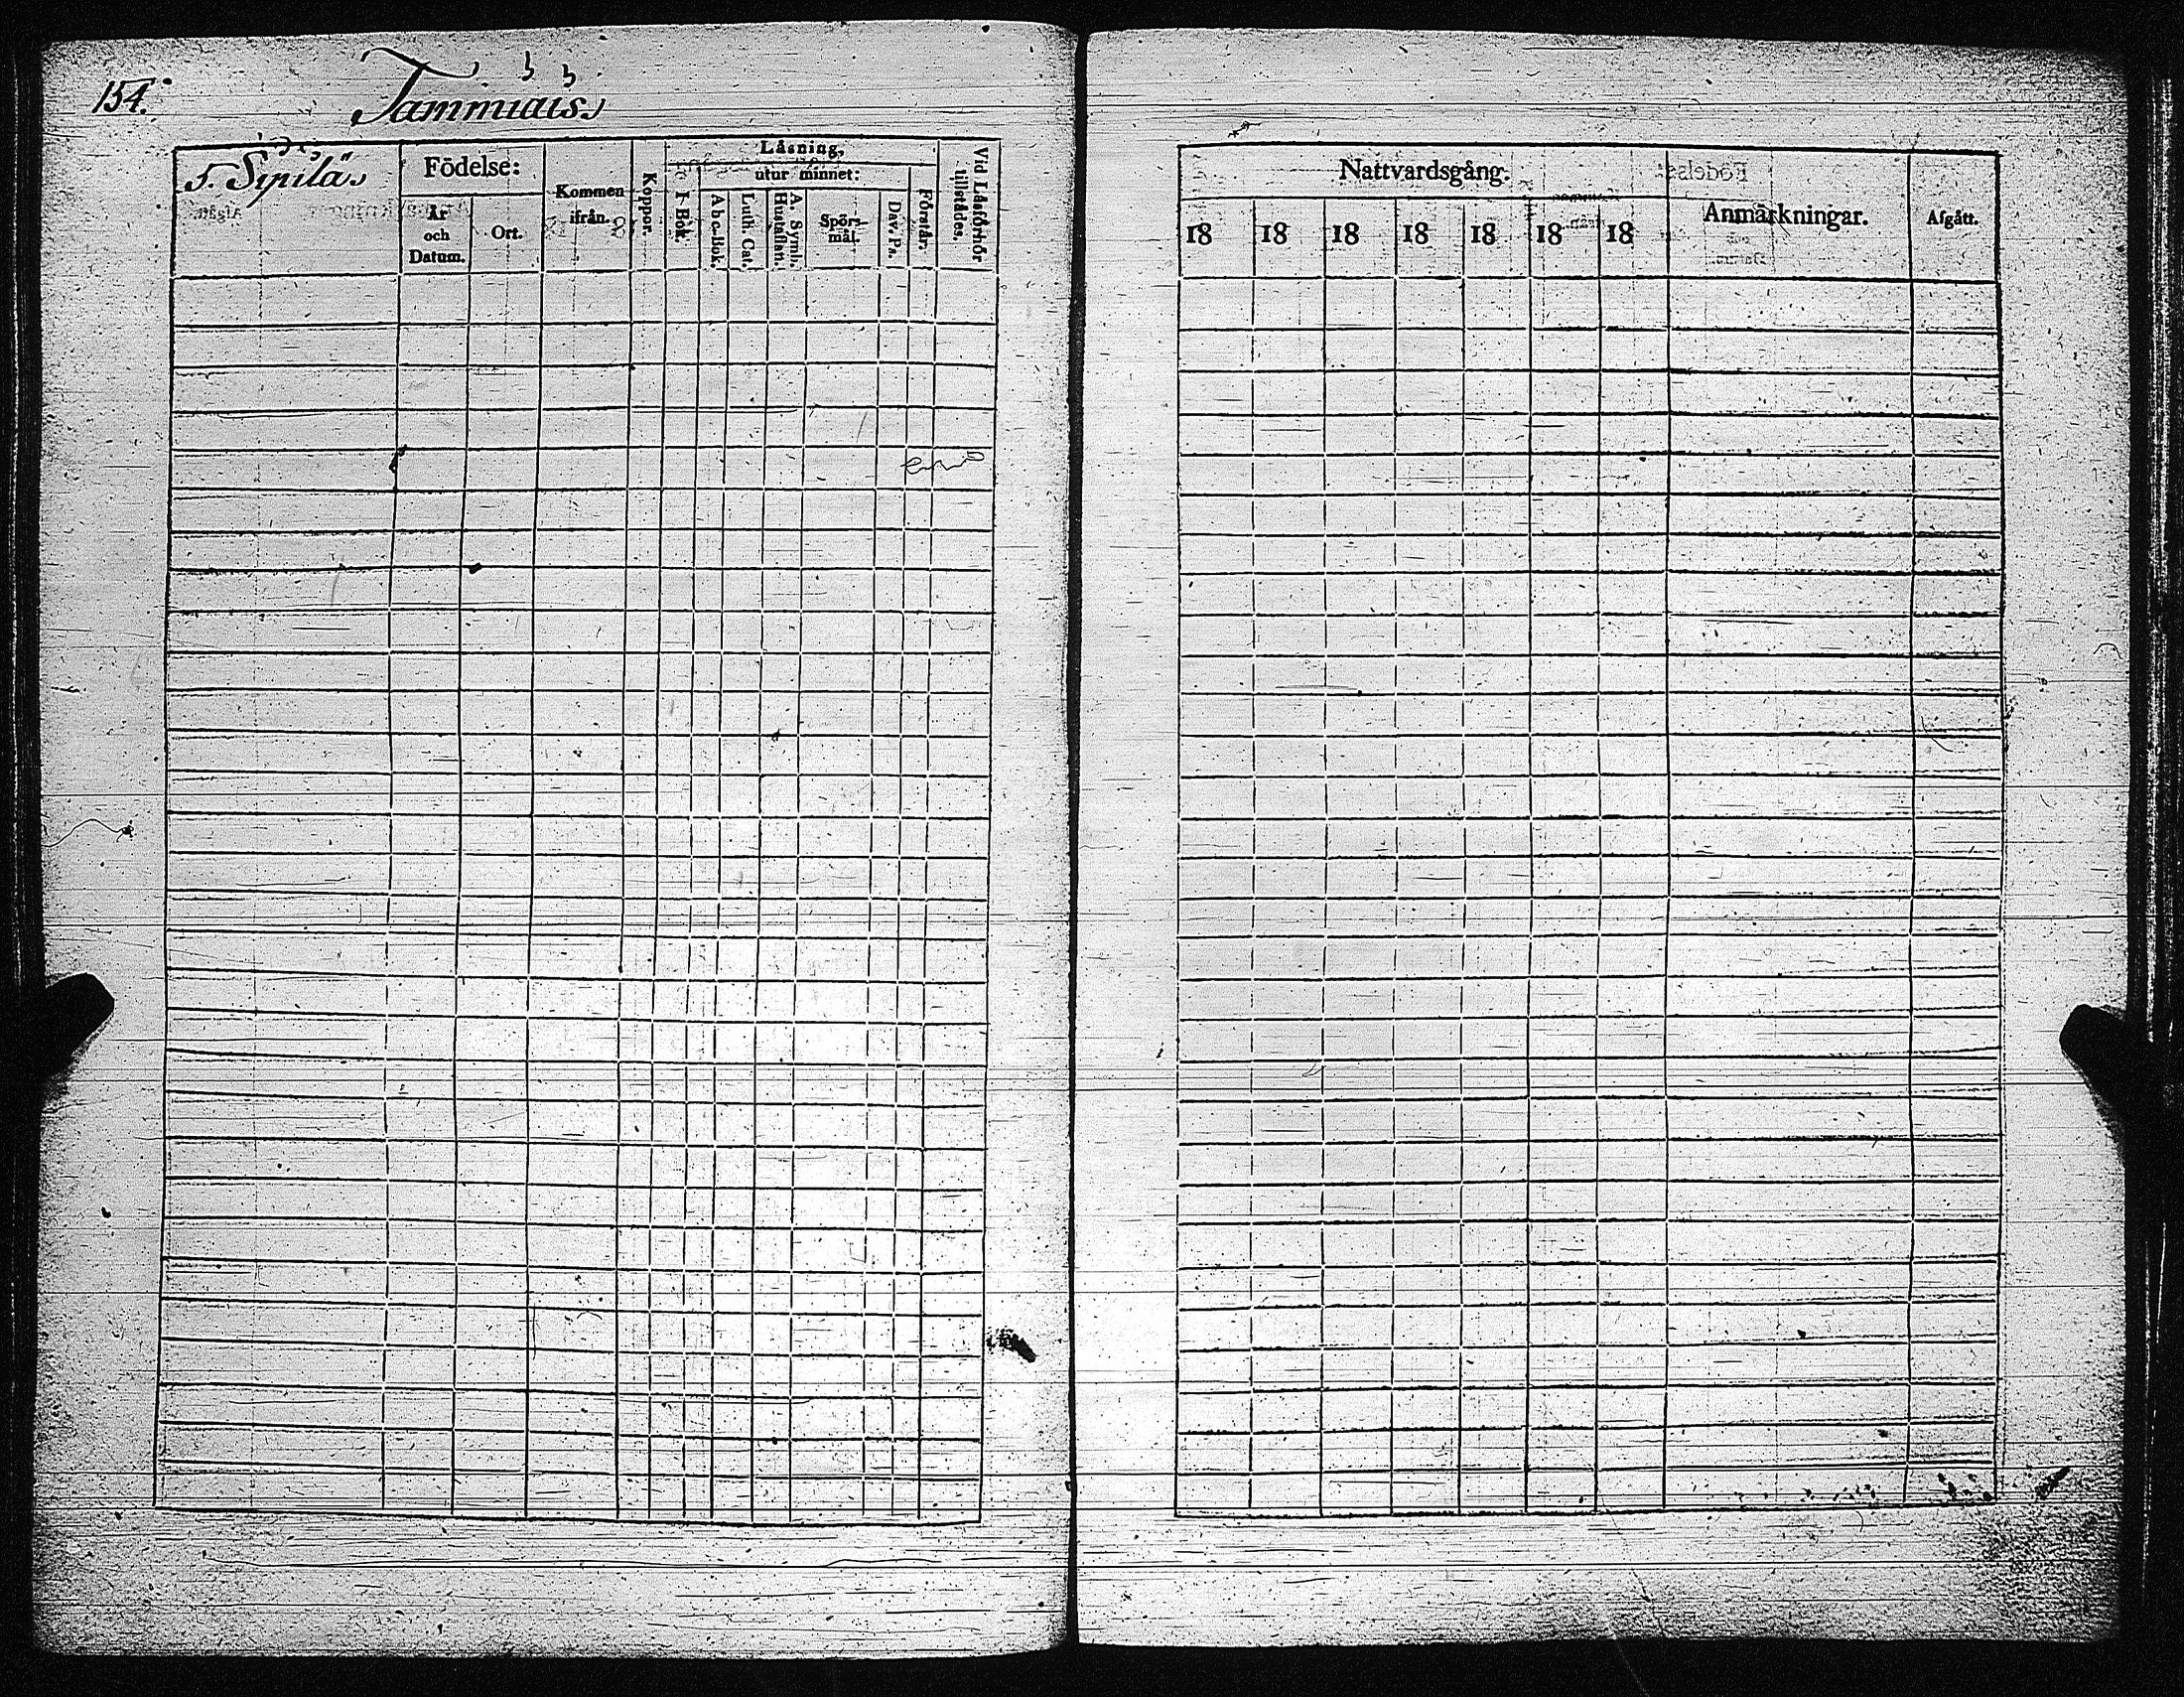 154.
Tammiais
5. Sipilä
Födelse:
År och Datum.
Ort.
Kommen ifrån.
Koppor.
Läsning,
utur minnet:
I Bok.
Abc-Bok.
Luth. Cat.
A. Symb. Hustaflan.
Spörsmål.
Dav. Ps.
Förstår.
Vid Läsförhör tillstädes.
Nattvardsgång.
18 18 18 18 18 18 18
Anmärkningar.
Afgått.